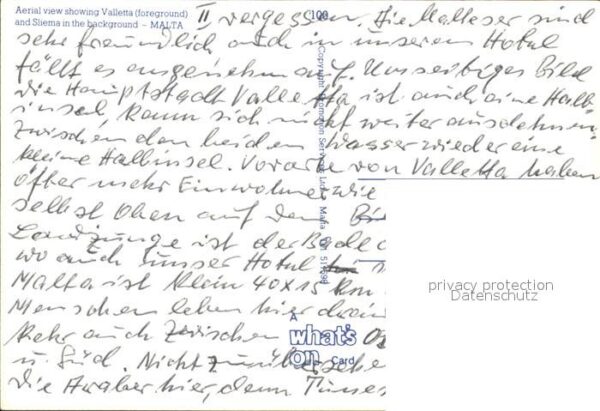 Aerial view showing Valletta (foreground)
and Sliema in the background – MALTA
100
II vergessen. Die Malteser sind
sehr freundlich auch in unserem Hotel
fällt es angenehm auf. Umseitiges Bild
die Hauptstadt Valletta ist auch eine Halb
insel kann sich nicht weiter ausdehnen
zwischen den beiden Wasser wieder eine
kleine Halbinsel. Vororte von Valletta haben
öfter mehr Einwohner wie
selbst Oben auf dem
Landzunge ist der Bade
wo auch unser Hotel
Malta ist klein 40x15 km
Menschen leben hier
kehr auch zwischen
u. Süd. Nicht zu übersehe
die Araber hier, denn Tunes
privacy protection
Datenschutz
A
what's
on
Card